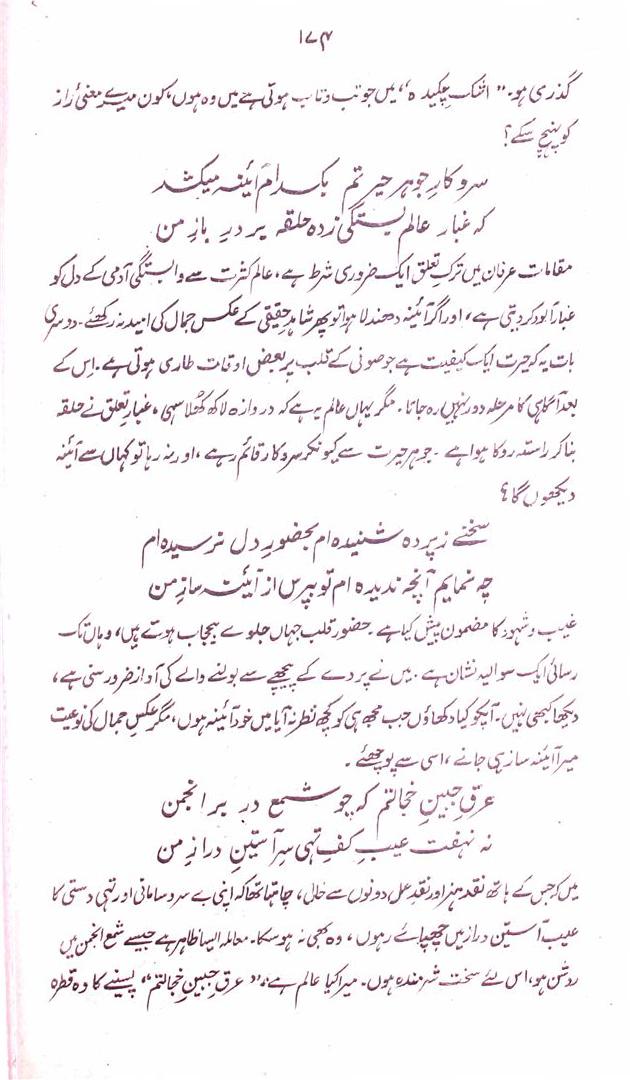 ۱۷۴
گذری ہو۔ “اشک چکیدہ” میں جو تب و تاب ہوتی ہے میں وہ ہوں، کون میرے معنیٔ راز
کو پہنچ سکے؟
سر و کارِ جوہر حیرتم بکدام آئنہ میکشد
کہ غبار عالم بستگی زدہ حلقہ بر درِ بازِ من
مقامات عرفان میں ترکِ تعلق ایک ضروری شرط ہے، عالم کثرت سے وابستگی آدمی کے دل کو
غبار آلود کر دیتی ہے، اور اگر آئینہ دھندلا ہوا تو پھر شاہدِ حقیقی کے عکس جمال کی امید نہ رکھئے۔ دوسری
بات یہ کہ حیرت ایک کیفیت ہے جو صوفی کے قلب پر بعض اوقات طاری ہوتی ہے۔ اس کے
بعد آگاہی کا مرحلہ دور نہیں رہ جاتا۔ مگر یہاں عالم یہ ہے کہ دروازہ لاکھ کھلا سہی، غبارِ تعلق نے حلقہ
بنا کر راستہ روکا ہوا ہے۔ جوہر حیرت سے کیونکر سروکار قائم رہے، اور نہ رہا تو کہاں سے آئنہ
دیکھوں گا؟
سخنے ز پردہ شنیدہ ام بحضورِ دل نرسیدہ ام
چہ نمایم آنچہ ندیدہ ام تو بپرس از آئنہ سازِ من
غیب و شہود کا مضمون پیش کیا ہے۔ حضور قلب جہاں جلوے بیحجاب ہوتے ہیں، وہاں تک
رسائی ایک سوالیہ نشان ہے۔ میں نے پردے کے پیچھے سے بولنے والے کی آواز ضرور سنی ہے،
دیکھا کبھی نہیں۔ آپکو کیا دکھاؤں جب مجھ ہی کو کچھ نظر نہ آیا میں خود آئینہ ہوں، مگر عکسِ جمال کی نوعیت
میرا آئینہ ساز ہی جانے، اسی سے پوچھئے۔
عرقِ جبینِ خجالتم کہ چو شمع در بر انجمن
نہ نہفت عیبِ کفِ تہی سرِ آستینِ درازِ من
میں کہ جس کے ہاتھ نقد ہنر اور نقدِ عمل دونوں سے خالی، چاہتا تھا کہ اپنی بے سروسامانی اور تہی دستی کا
عیب آستینِ دراز میں چھپائے رہوں، وہ بھی نہ ہو سکا۔ معاملہ ایسا ظاہر ہے جیسے شمع انجمن میں
روشن ہو، اس لئے سخت شرمندہ ہوں۔ میرا کیا عالم ہے، “عرقِ جبینِ خجالتم” پسینے کا وہ قطرہ